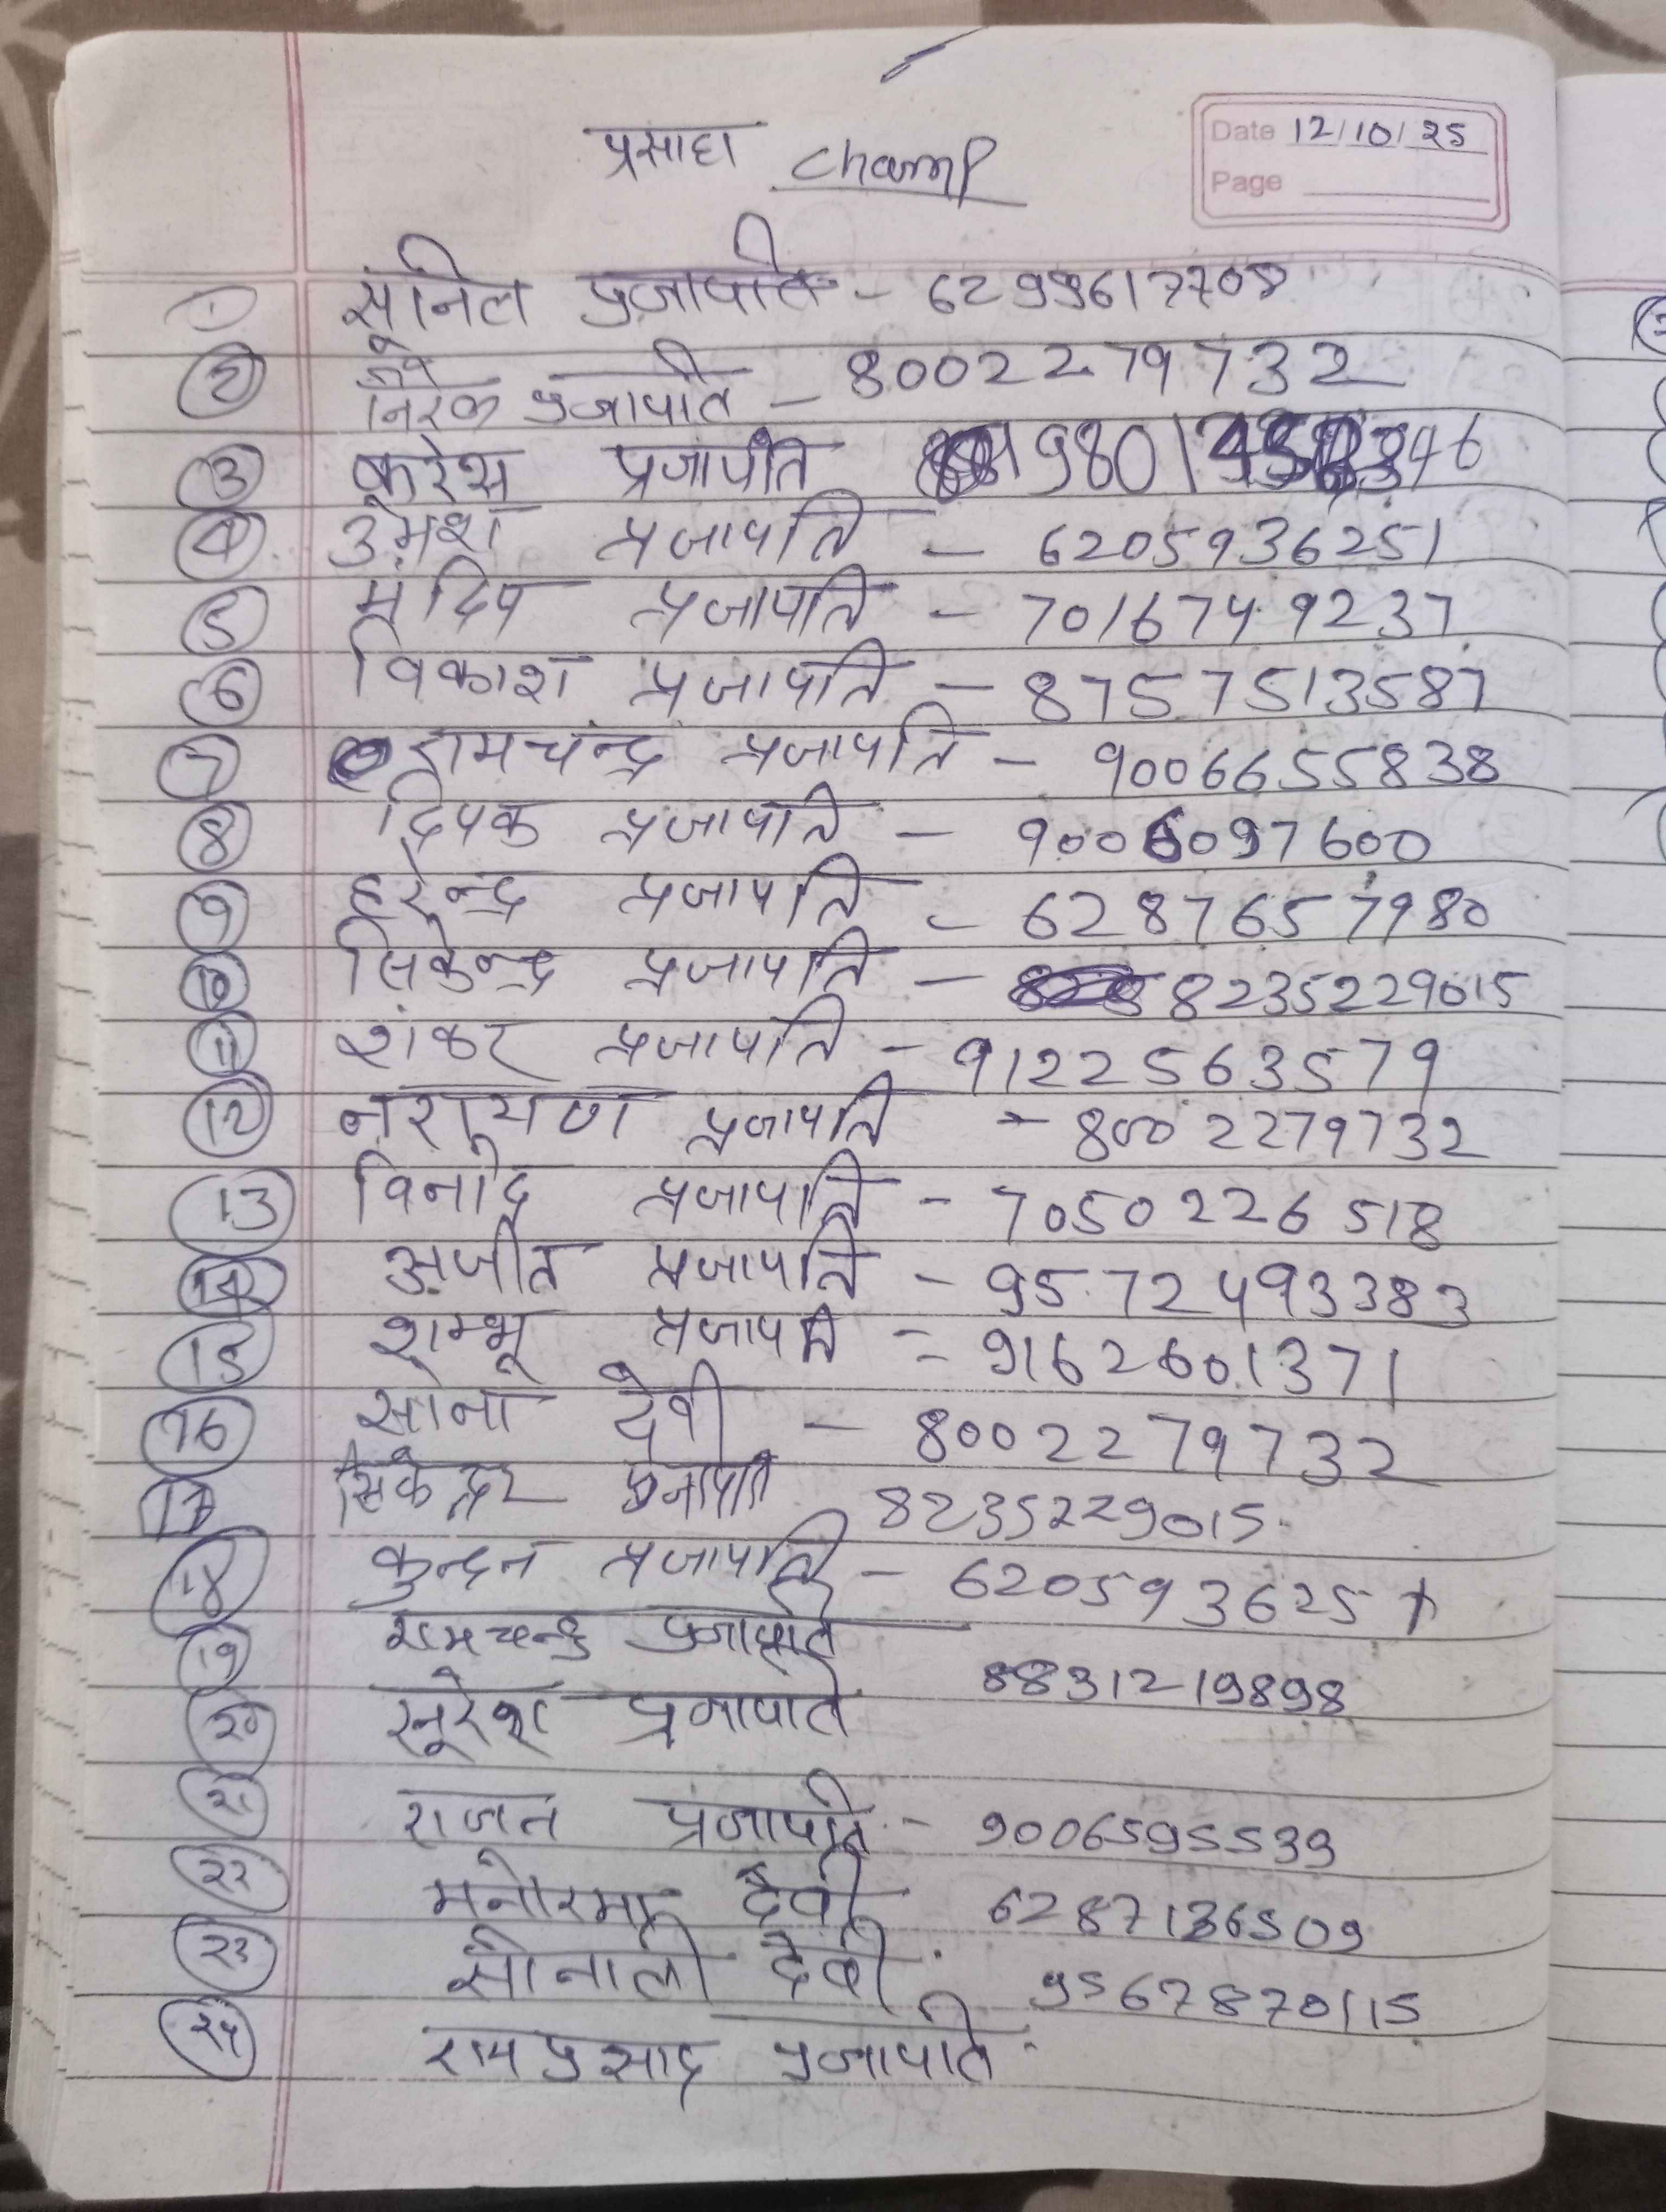 प्रसाहा Champ
Date 12/10/25
Page
1 सुनिल प्रजापति - 6299617708
2 प्रजापति - 8002279732
3 प्रजापति 9801
4 उमेश प्रजापति - 6205936251
5 संदिप प्रजापति - 7016749237
6 विकाश प्रजापति - 8757513587
7 रामचन्द्र प्रजापति - 9006655838
8 दिपक प्रजापति - 9006097600
9 हरेन्द्र प्रजापति - 6287657980
10 सिकेन्द्र प्रजापति - 8235229015
11 शंकर प्रजापति - 9122563579
12 नरायण प्रजापति - 8002279732
13 विनोद प्रजापति - 7050226518
14 अजीत प्रजापति - 9572493383
15 शम्भू प्रजापति = 9162601371
16 सोना देवी - 8002279732
17 सिकेन्दर प्रजापति 8235229015
18 कुन्दन प्रजापति - 620593625
19 रामचन्द्र प्रजापति
20 सुरेश प्रजापति 8831219898
21 राजन प्रजापति - 9006595539
22 मनोरमा देवी 6287136509
23 सोनाली देवी 9567870115
24 रामप्रसाद प्रजापति